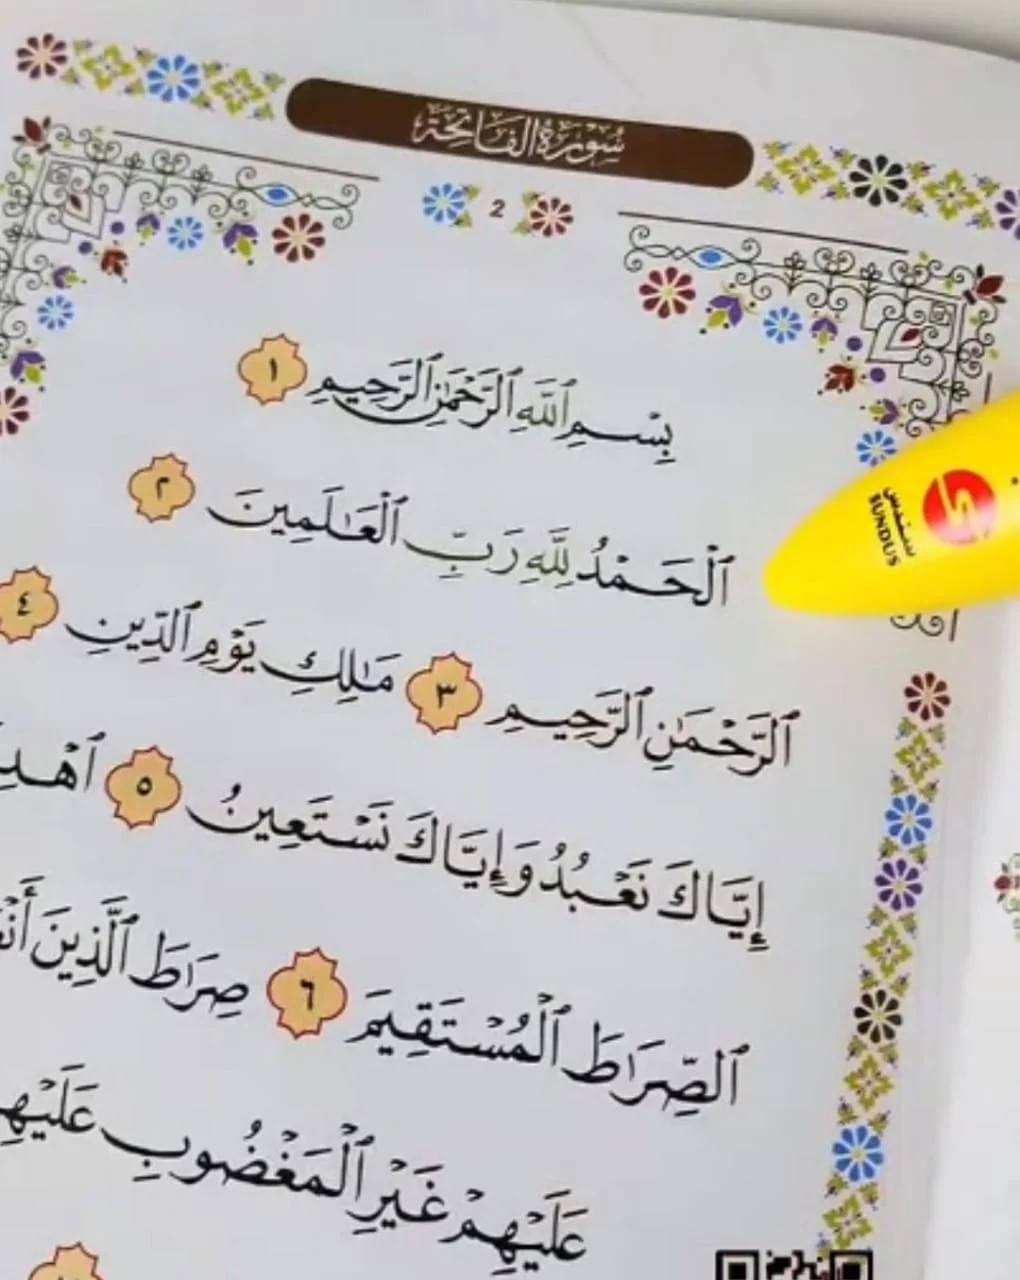 سُورَةُ الفَاتِحَة
2
بِسْمِ ٱللَّهِ ٱلرَّحْمَٰنِ ٱلرَّحِيمِ ١
ٱلْحَمْدُ لِلَّهِ رَبِّ ٱلْعَٰلَمِينَ ٢
ٱلرَّحْمَٰنِ ٱلرَّحِيمِ ٣ مَٰلِكِ يَوْمِ ٱلدِّينِ ٤
إِيَّاكَ نَعْبُدُ وَإِيَّاكَ نَسْتَعِينُ ٥
ٱلصِّرَٰطَ ٱلْمُسْتَقِيمَ ٦ صِرَٰطَ ٱلَّذِينَ
عَلَيْهِمْ غَيْرِ ٱلْمَغْضُوبِ
سندس
SUNDUS